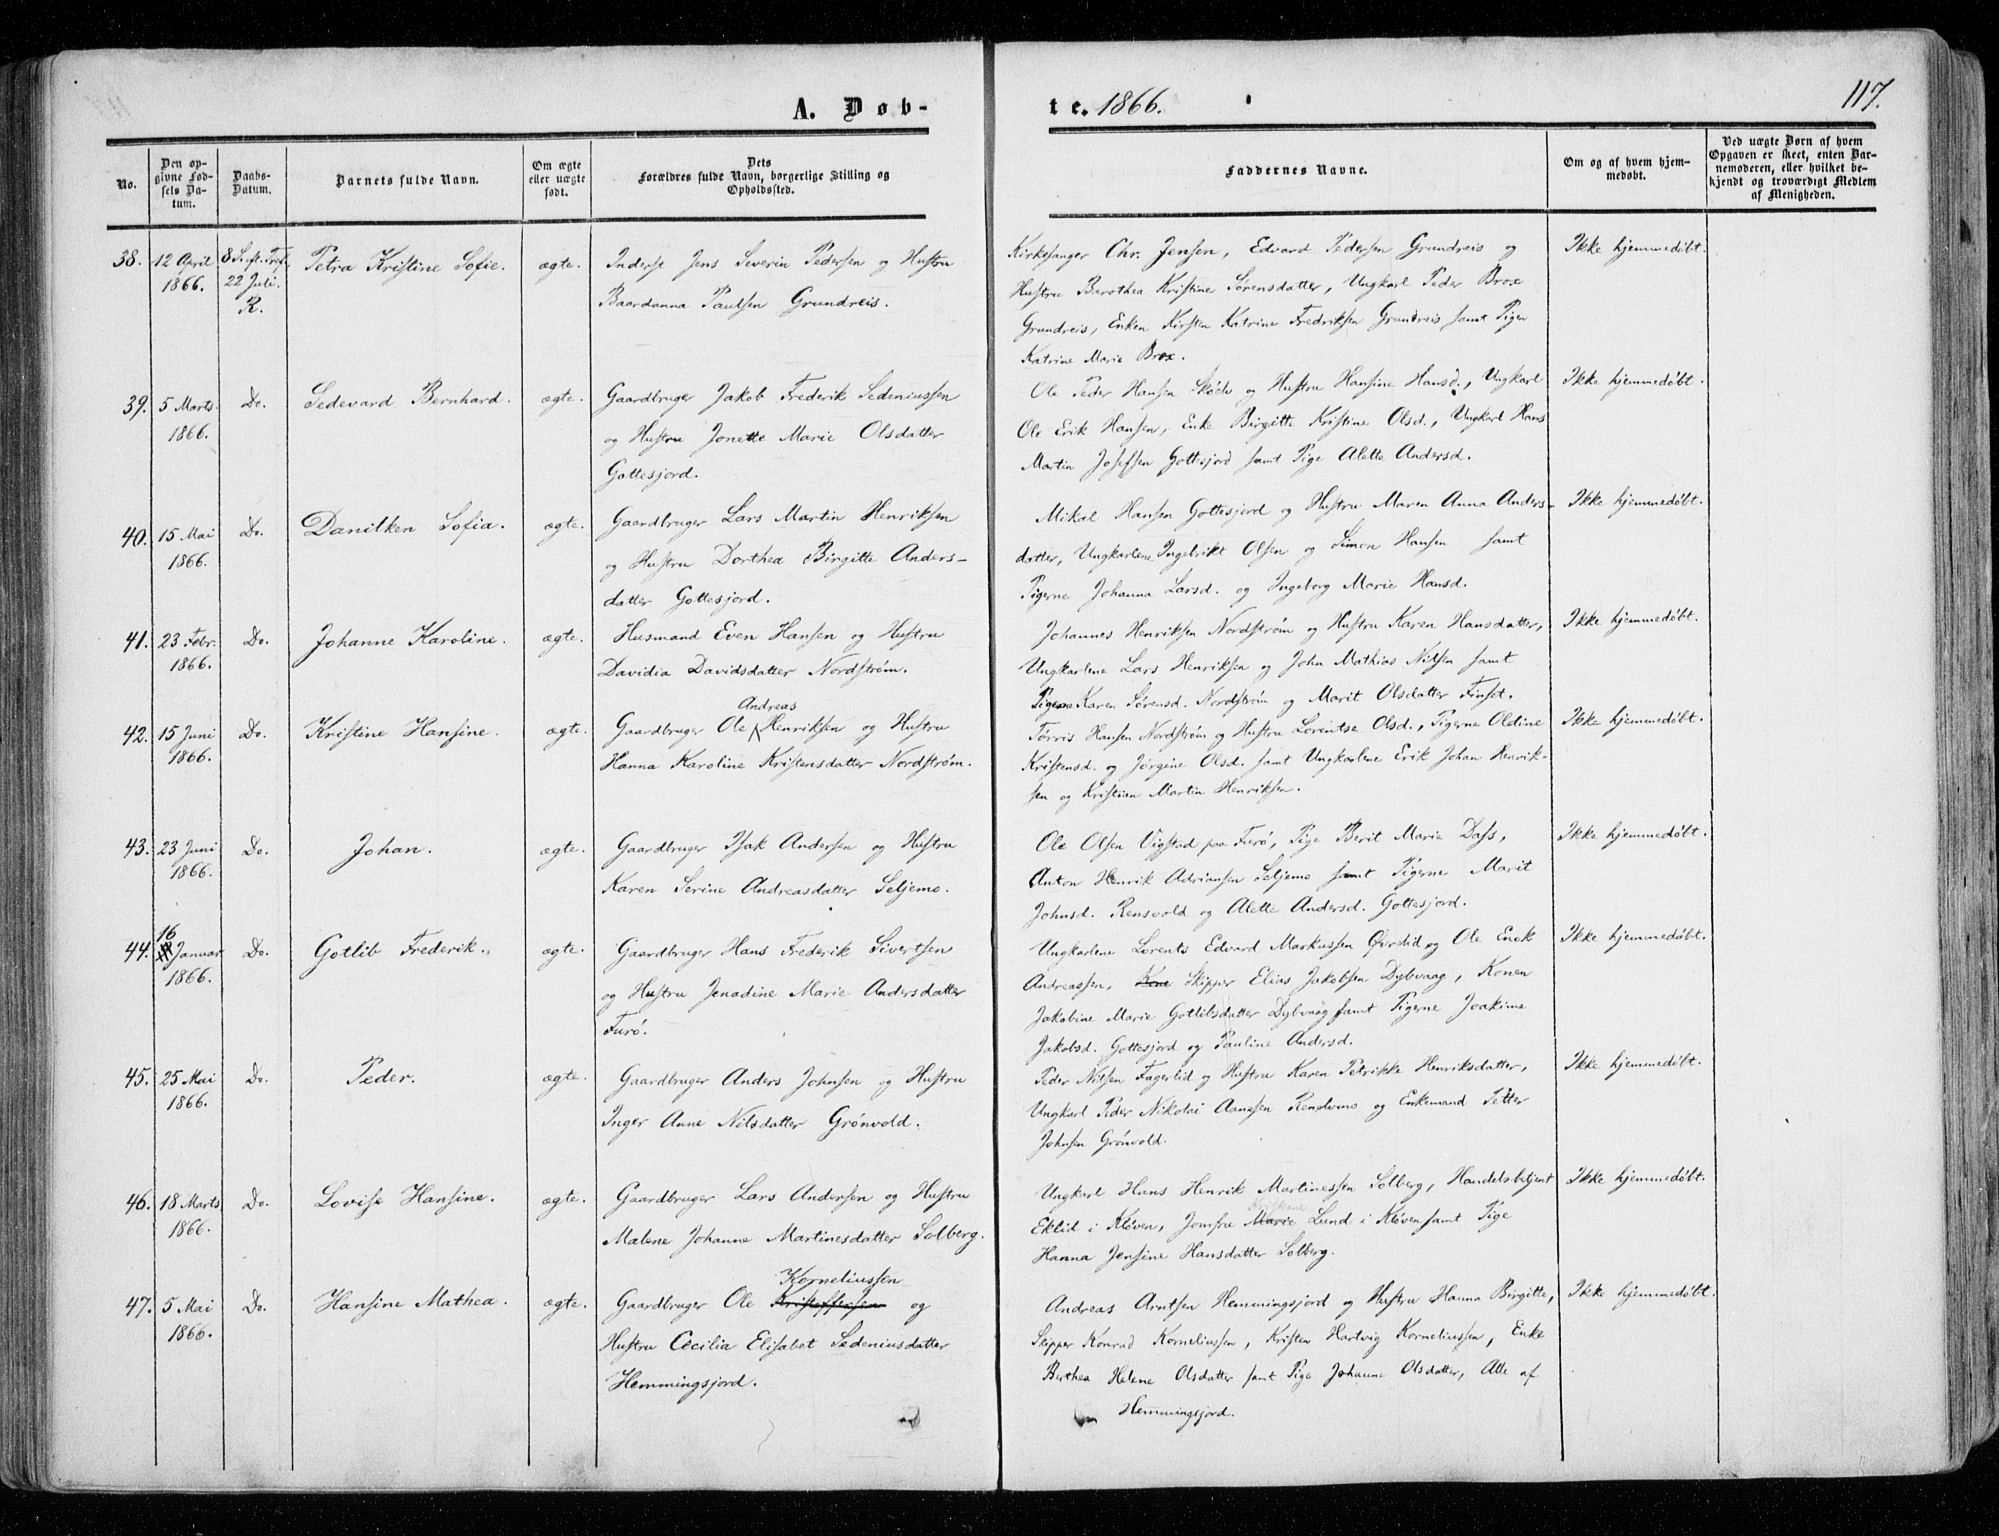 A. Døb-
te. 1866.
117.
No.
Den op-
givne Fød-
sels Da-
tum.
Daabs-
Datum.
Barnets fulde Navn.
Om ægte
eller uægte
født.
Dets
Forældres fulde Navn, borgerlige Stilling og
Opholdssted.
Faddernes Navne.
Om og af hvem hjem-
medøbt.
Ved uægte Børn af hvem
Opgaven er skeet, enten Bar-
nemoderen, eller hvilket be-
kjendt og troværdigt Medlem
af Menigheden.
38.
12 April
1866.
22 Juli.
R.
Petra Kristine Sofie.
ægte.
Inderst Jens Severin Pedersen og Hustru
Baardanna Paulsen Grundreis.
Kirkesanger Chr. Jensen, Edvard Pedersen Grundreis og
Hustru Barothea Kristine Sørensdatter, Ungkarl Peder Brox
Grundreis, Enken Kirsten Katrine Fredriksen Grundreis samt Pigen
Katrine Marie Brox.
Ikke hjemmedøbt.
39.
5 Marts
1866.
Do.
Sedevard Bernhard.
ægte.
Gaardbruger Jakob Frederik Sedeniussen
og Hustru Jonette Marie Olsdatter
Gottesjord.
Ole Peder Hansen og Hustru Hansine Hansd., Ungkarl
Ole Erik Hansen, Enke Birgitte Kristine Olsd., Ungkarl Hans
Martin Josefsen Gottesjord samt Pige Alette Andersd.
Ikke hjemmedøbt.
40.
15 Mai
1866.
Do.
Danilken Sofia.
ægte.
Gaardbruger Lars Martin Henriksen
og Hustru Dorthea Birgitte Anders-
datter Gottesjord.
Mikal Hansen Gottesjord og Hustru Maren Anna Anders-
datter, Ungkarlene Ingebrikt Olsen og Simon Hansen samt
Pigerne Johanna Larsd. og Ingeborg Marie Hansd.
Ikke hjemmedøbt.
41.
23 Febr.
1866.
Do.
Johanne Karoline.
ægte.
Husmand Even Hansen og Hustru
Davidia Davidsdatter Nordstrøm.
Johannes Henriksen Nordstrøm og Hustru Karen Hansdatter,
Ungkarlene Lars Henriksen og John Mathias Nilsen samt
Pigerne Karen Sørensd. Nordstrøm og Marit Olsdatter Finset.
Ikke hjemmedøbt.
42.
15 Juni
1866.
Do.
Kristine Hansine.
ægte.
Andreas
Gaardbruger Ole Henriksen og Hustru
Hanna Karoline Kristensdatter Nordstrøm.
Tørris Hansen Nordstrøm og Hustru Lorentse Olsd., Pigerne Oldine
Kristensd. og Jørgine Olsd. samt Ungkarlene Erik Johan Henrik-
sen og Kristian Martin Henriksen.
Ikke hjemmedøbt.
43.
23 Juni
1866.
Do.
Johan.
ægte.
Gaardbruger Isak Andersen og Hustru
Karen Serine Andreasdatter Seljemo.
Ole Olsen Vigstad paa Furø, Pige Berit Marie Dass,
Anton Henrik Adriansen Seljemo samt Pigerne Marit
Johnsd. Rensvold og Alette Andersd. Gottesjord.
Ikke hjemmedøbt.
44.
16
Januar
1866.
Do.
Gotlib Frederik.
ægte.
Gaardbruger Hans Frederik Sivertsen
og Hustru Jenadine Marie Andersdatter
Furø.
Ungkarlene Lorents Edvard Markussen Øvrelid og Ole Enok
Andreassen, Kone Skipper Elias Jakobsen Dybvaag, Konen
Jakobine Marie Gotlibsdatter Dybvaag samt Pigerne Joakime
Jakobsd. Gottesjord og Pauline Andersd.
Ikke hjemmedøbt.
45.
25 Mai
1866.
Do.
Peder.
ægte.
Gaardbruger Anders Johnsen og Hustru
Inger Anne Nilsdatter Grønvold.
Peder Nilsen Fagerlid og Hustru Karen Petrikke Henriksdatter,
Ungkarl Peder Nikolai Aanssen og Enkemand Petter
Johnsen Grønvold.
Ikke hjemmedøbt.
46.
18 Marts
1866.
Do.
Lovise Hansine.
ægte.
Gaardbruger Lars Andersen og Hustru
Malene Johanne Martinesdatter Solberg.
Ungkarl Hans Henrik Martinessen Solberg, Handelsbetjent
Eklid i Kløven, Jomfru Marie Lund i Kløven samt Pige
Hanna Jensine Hansdatter Solberg.
Ikke hjemmedøbt.
47.
5 Mai
1866.
Do.
Hansine Mathea.
ægte.
Korneliussen
Gaardbruger Ole Kristoffersen og
Hustru Cecilia Elisabet Sedeniusdatter
Hemmingsjord.
Andreas Arntsen Hemmingsjord og Hustru Hanna Birgitte,
Skipper Konrad Korneliussen, Kristen Hartvig Korneliussen, Enke
Berthea Helene Olsdatter samt Pige Johanne Olsdatter, Alle af
Hemmingsjord.
Ikke hjemmedøbt.